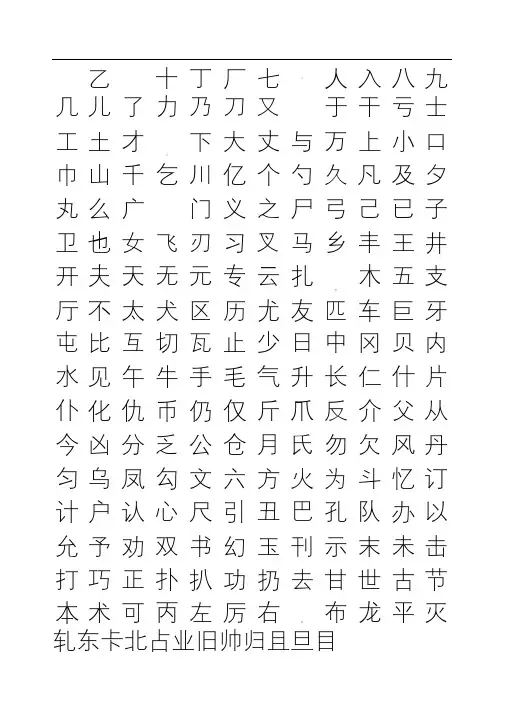 乙 十丁厂七 人入八九
几儿了力乃刀又 于干亏士
工土才 下大丈与万上小口
巾山千乞川亿个勺久凡及夕
丸么广 门义之尸弓己已子
卫也女飞刃习叉马乡丰王井
开夫天无元专云扎 木五支
厅不太犬区历尤友匹车巨牙
屯比互切瓦止少日中冈贝内
水见午牛手毛气升长仁什片
仆化仇币仍仅斤爪反介父从
今凶分乏公仓月氏勿欠风丹
匀乌凤勾文六方火为斗忆订
计户认心尺引丑巴孔队办以
允予劝双书幻玉刊示末未击
打巧正扑扒功扔去甘世古节
本术可丙左厉右 布龙平灭
轧东卡北占业旧帅归且旦目